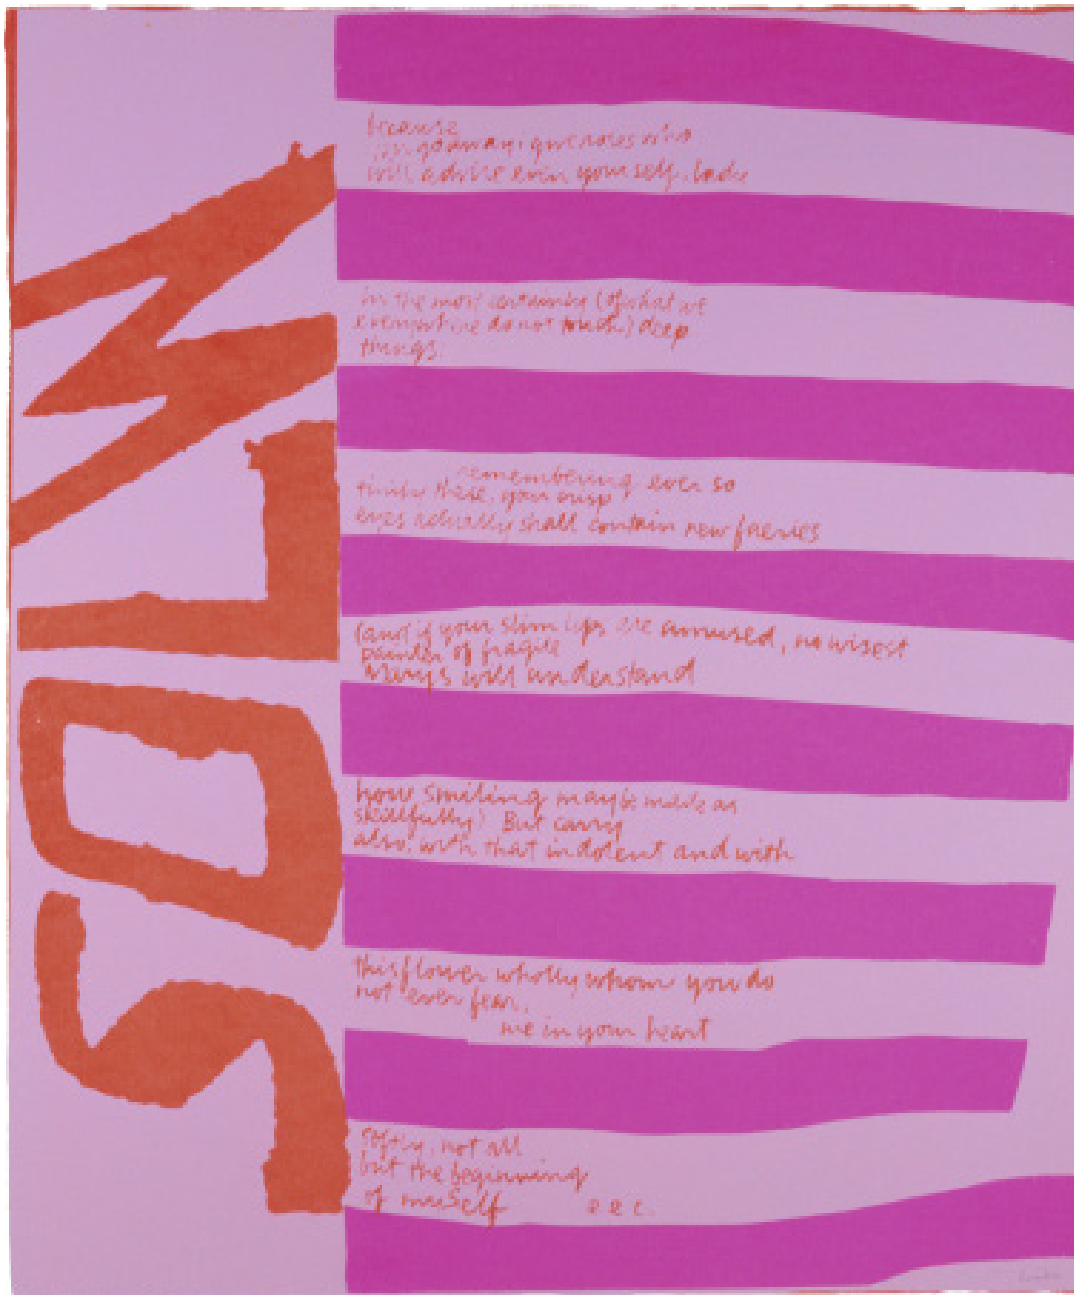 SOLW
because
you go away i give roses who
will advise even yourself, lady
in the most certainly (of what we
everywhere do not touch) deep
things;
remembering ever so
tinily these, your crisp
eyes actually shall contain new faeries
(and if your slim lips are amused, no wisest
painter of fragile
Marys will understand
how smiling may be made as
skilfully) But carry
also, with that indolent and with
this flower wholly whom you do
not ever fear,
me in your heart
softly, not all
but the beginning
of mySelf e e c.